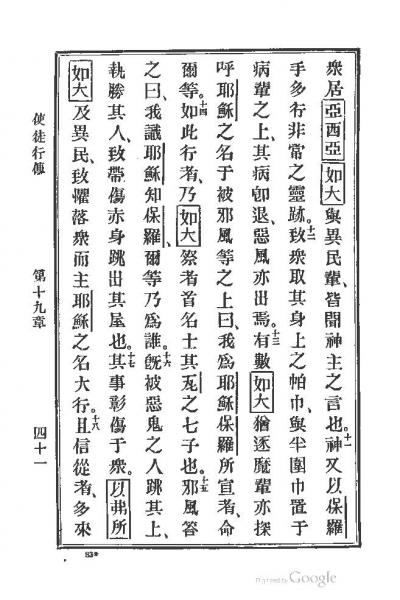 眾居亞西亞如大與異民輩、皆聞神主之言也。十一神又以保羅
手多行非常之靈跡。十二致眾取其身上之帕巾、與半圍巾置于
病輩之上、其病卽退、惡風亦出焉。十三有數如大猶逐魔輩亦探
呼耶穌之名于被邪風等之上曰、我爲耶穌保羅所宣者、命
爾等。十四如此行者、乃如大祭者首名士其瓦之七子也。十五邪風答
之曰、我識耶穌知保羅、爾等乃爲誰。十六旣被惡鬼之人跳其上、
執勝其人、致帶傷赤身跳出其屋也。十七其事彰傷于眾。以弗所
如大及異民、致懼落眾而主耶穌之名大行。十八且信從者、多來
使徒行傳 第十九章 四十一
83*
Digitized by Google